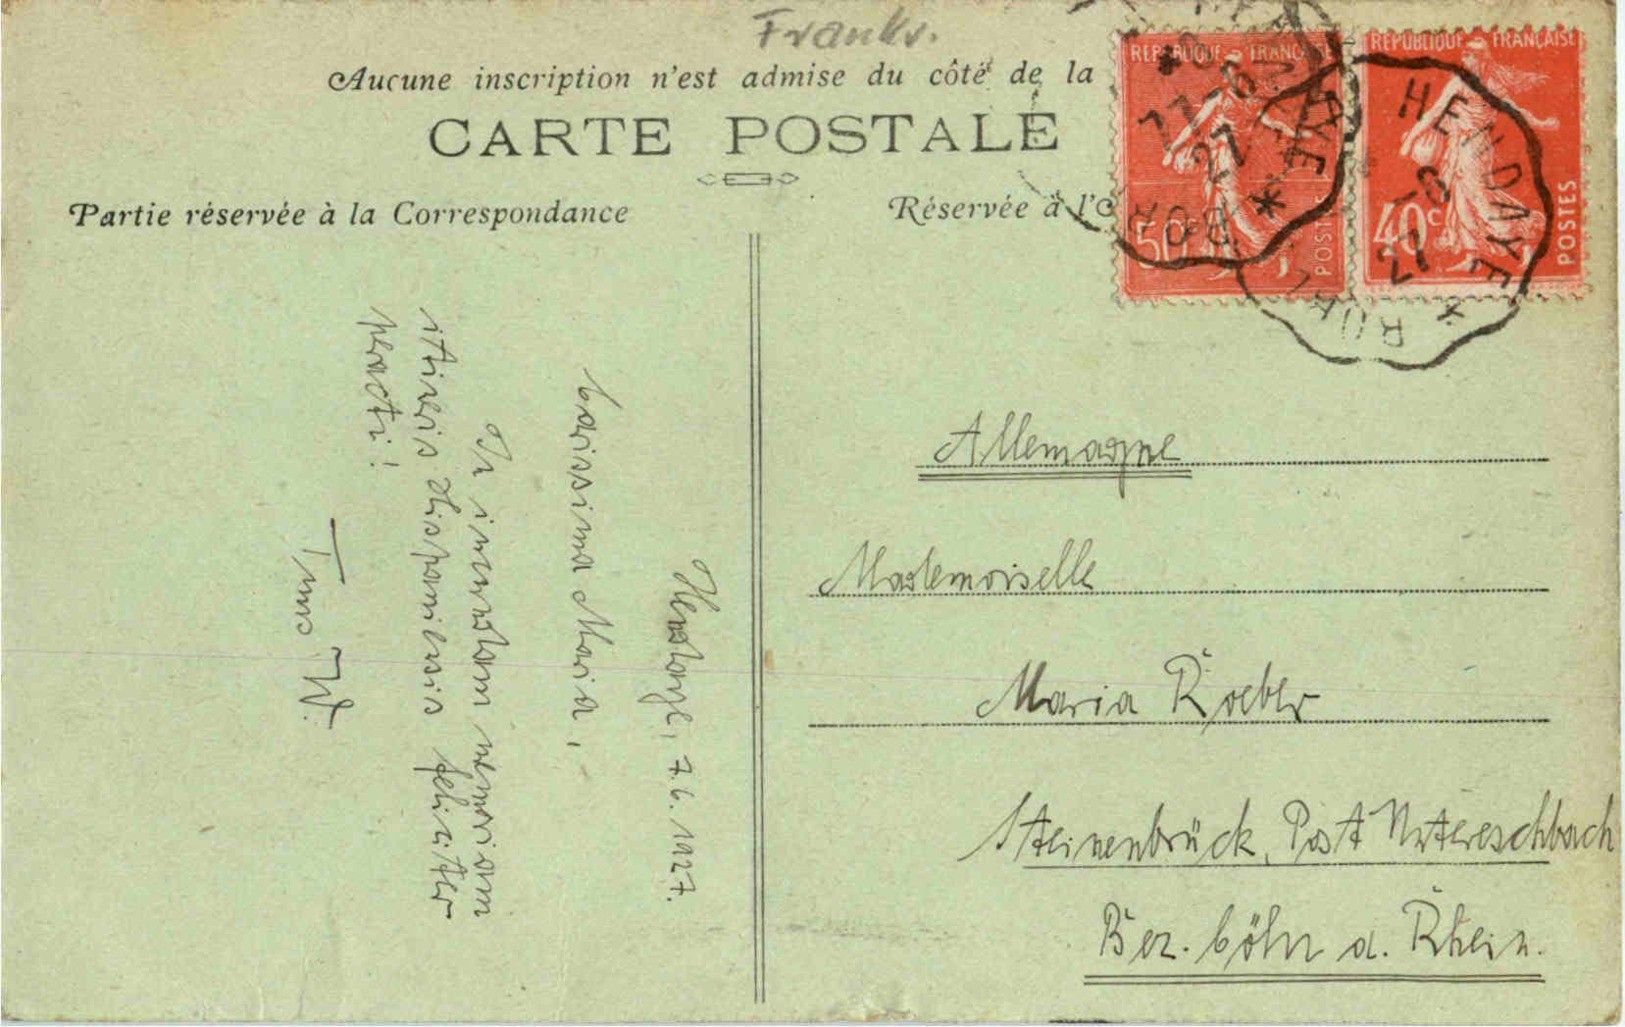 Frankr.
Aucune inscription n'est admise du côté de la
CARTE POSTALE
Partie réservée à la Correspondance
Réservée à l'
REPUBLIQUE FRANÇAISE
50c
POSTES
REPUBLIQUE FRANÇAISE
40c
POSTES
HENDAYE
27
HENDAYE
27
Hendaye, 7.6.1927.
Carissima Maria,
In iucundam memoriam
itineris Hispaniensis feliciter
peracti!
Tuus W.
Allemagne
Mademoiselle
Maria Roeber
Steinenbrück, Post Untereschbach
Bez. Cöln a. Rhein.